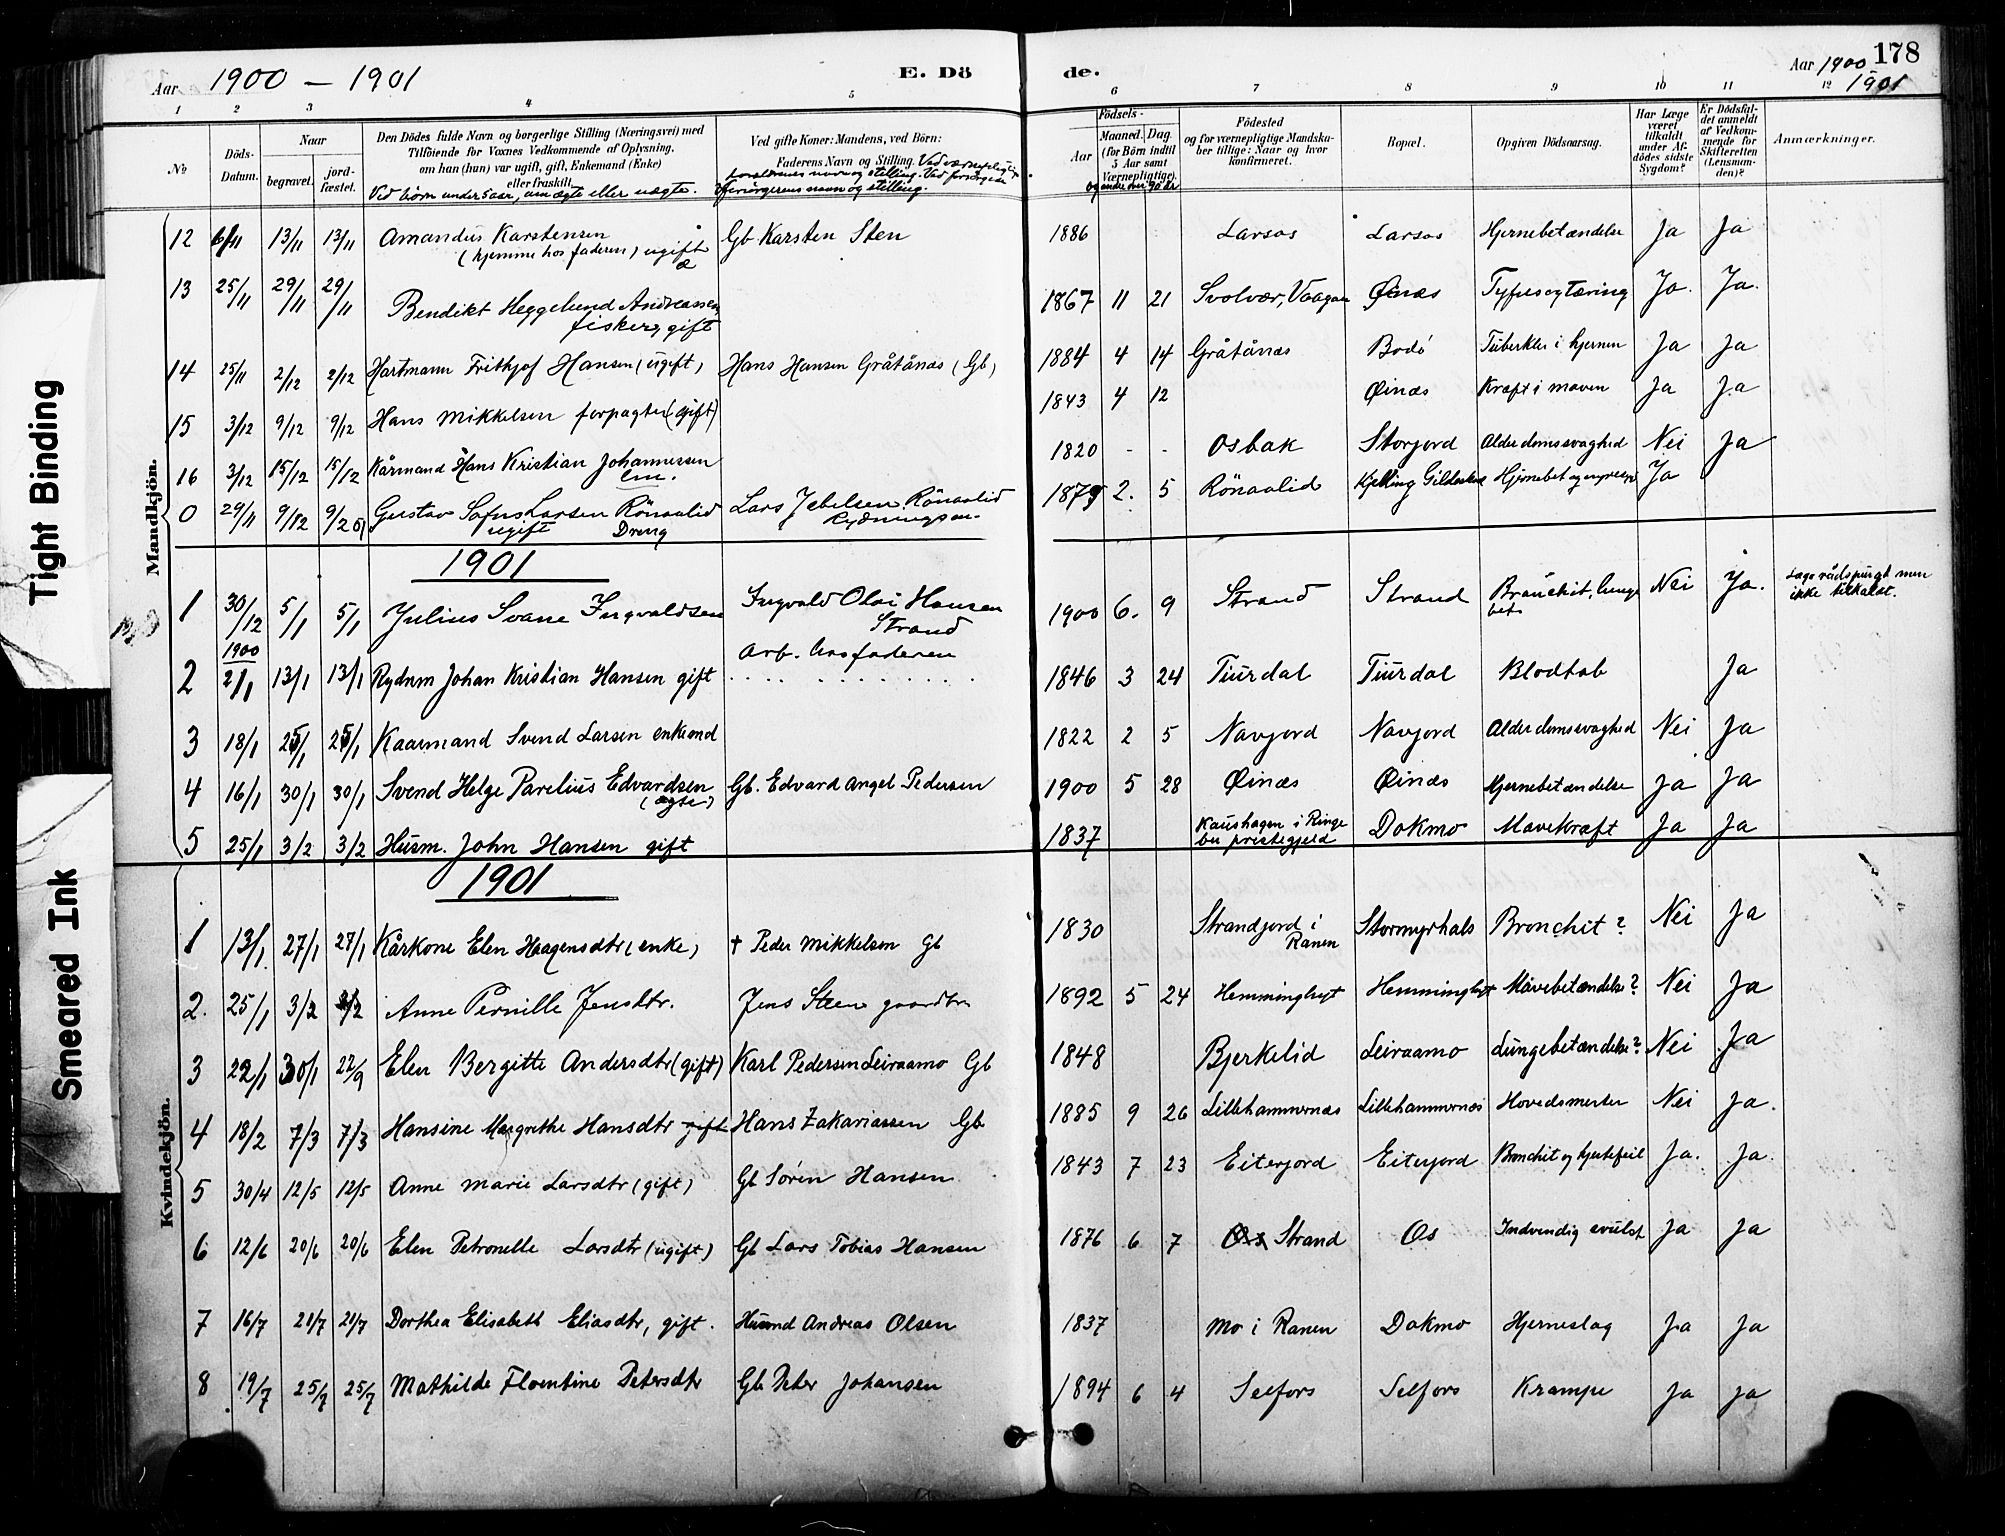 Tight Binding
Smeared Ink
Aar 1900 – 1901
E. Dö
de.
Aar 1900
1901
178
1 2 3 4 5 6 7 8 9 10 11 12
№
Döds-Datum.
Naar
begravet.
jord-fæstet.
Den Dödes fulde Navn og borgerlige Stilling (Næringsvei) med
Tilföiende for Voxnes Vedkommende af Oplysning,
om han (han) var ugift, gift, Enkemand (Enke)
eller fraskilt.
Ved börn under 5 aar, om ægte eller uægte.
Ved gifte Koner: Mandens, ved Börn:
Faderens Navn og Stilling.
Födsels-
Aar
Maaned. Dag.
(for Börn indtil
5 Aar samt
Værnepligtige).
og andre over 90 år
Födested
og for værnepligtige Mandska-
ber tillige: Naar og hvor
konfirmeret.
Bopæl.
Opgiven Dödsaarsag.
Har Læge
været
tilkaldt
under Af-
dödes sidste
Sygdom?
Er Dödsfal-
det anmeldt
af Vedkom-
mende for
Skifteretten
(Lensman-
den)?
Anmærkninger.
Mandkjön.
12 6/11 13/11 13/11 Amandus Karstensen Gb Karsten Sten 1886 Larsos Larsos Hjernebetændelse Ja Ja
(hjemme hos faderen) ugift
æ
13 25/11 29/11 29/11 Bendikt Heggelund Andreassen 1867 11 21 Svolvær, Vaagan Øinæs Tyfus og tæring Ja. Ja.
fisker, gift
14 25/11 2/12 2/12 Hartmann Frithjof Hansen (ugift) Hans Hansen Gråtånæs (Gb) 1884 4 14 Gråtånæs Bodö Tuberkler i hjernen Ja Ja
15 3/12 9/12 9/12 Hans Mikkelsen forpagter (gift) 1843 4 12 Øinæs Kræft i maven Ja Ja
16 3/12 15/12 15/12 Kårmand Hans Kristian Johannessen 1820 - - Osbak Storjord Alderdomssvaghed Nei Ja
em.
0 29/11 9/12 Gustav Sofus Larsen Rönaalid Lars Rönaalid 1879 2. 5 Rönaalid Kjelling Ja
ugift Dreng
1901
1 30/12 1900 5/1 5/1 Julius Svane Ingvaldsen Ingvald Olai Hansen 1900 6. 9 Strand Strand Nei Ja. Læge rådspurgt men
Strand
ikke tilkaldt.
Arb. hos faderen
2 2/1 13/1 13/1 Rydnm Johan Kristian Hansen gift 1846 3 24 Tiurdal Tiurdal Blodtab Ja
3 18/1 25/1 25/1 Kaarmand Svend Larsen enkemd 1822 2 5 Navjord Navjord Alderdomssvaghed Nei Ja
4 16/1 30/1 30/1 Svend Helge Parelius Edvardsen Gb. Edvard Angel Pedersen 1900 5 28 Øinæs Øinæs Hjernebetændelse Ja Ja
(ægte)
5 25/1 3/2 3/2 Husm. John Hansen gift 1837 Kaushagen i Ringe Dokmo Mavekræft Ja Ja
bu prestegjeld
Kvindekjön.
1901
1 13/1 27/1 27/1 Kårkone Elen Haagensdtr (enke) † Peder Mikkelsen Gb 1830 Strandjord i Stormyrhals Bronchit? Nei Ja
Ranen
2. 25/1 3/2 3/2 Anne Pernille Jensdtr. Jens Steen gaardbr 1892 5 24 Hemminghyt Hemminghyt Mavebetændelse? Nei Ja
3 22/1 30/1 22/9 Elen Bergitte Andersdtr (gift) Karl Pedersen Leiraamo Gb 1848 Bjerkelid Leiraamo Lungebetændelse? Nei Ja
4 18/2 7/3 7/3 Hansine Margrethe Hansdtr gift Hans Zakariassen Gb 1885 9 26 Lillehammernæs Lillehammernæs Hovedsmerter Nei Ja.
5 30/4 12/5 12/5 Anne Marie Larsdtr (gift) Gb Sören Hansen 1843 7 23 Eiterjord Eiterjord Bronchit og hjertefeil Ja. Ja.
6 12/6 20/6 20/6 Elen Petronelle Larsdtr (ugift) Gb Lars Tobias Hansen 1876 6 7 Os Strand Os Indvendig svulst Ja Ja
7 16/7 21/7 21/7 Dorthea Elisabeth Eliasdtr, gift. Husmd Andreas Olsen 1837 Mo i Ranen Dokmo Hjerneslag Ja Ja
8 19/7 25/7 25/7 Mathilde Florentine Petersdtr Gb Peter Johansen 1894 6 4 Selfors Selfors Krampe Ja Ja